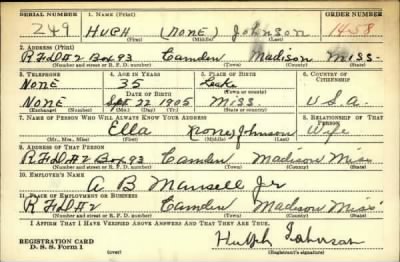 SERIAL NUMBER 1. NAME (Print) ORDER NUMBER
249 HUGH (NONE) Johnson 1458
(First) (Middle) (Last)
2. ADDRESS (Print)
RFD#2 Box 93 Camden Madison Miss.
(Number and street or R. F. D. number) (Town) (County) (State)
3. TELEPHONE 4. AGE IN YEARS 5. PLACE OF BIRTH 6. COUNTRY OF CITIZENSHIP
None 35 Leake
DATE OF BIRTH (Town or county)
None Sept 22 1905 Miss. U.S.A.
(Exchange) (No.) (Mo.) (Day) (Yr.) (State or country)
7. NAME OF PERSON WHO WILL ALWAYS KNOW YOUR ADDRESS 8. RELATIONSHIP OF THAT PERSON
Ella (none) Johnson Wife
(Mr., Mrs., Miss) (First) (Middle) (Last)
9. ADDRESS OF THAT PERSON
RFD#2 Box 93 Camden Madison Miss
(Number and street or R. F. D. number) (Town) (County) (State)
10. EMPLOYER'S NAME
A B Mansell Jr
11. PLACE OF EMPLOYMENT OR BUSINESS
RFD#2 Camden Madison Miss
(Number and street or R. F. D. number) (Town) (County) (State)
I AFFIRM THAT I HAVE VERIFIED ABOVE ANSWERS AND THAT THEY ARE TRUE.
REGISTRATION CARD
D. S. S. Form 1 (over) (Registrant's signature)
Johnson